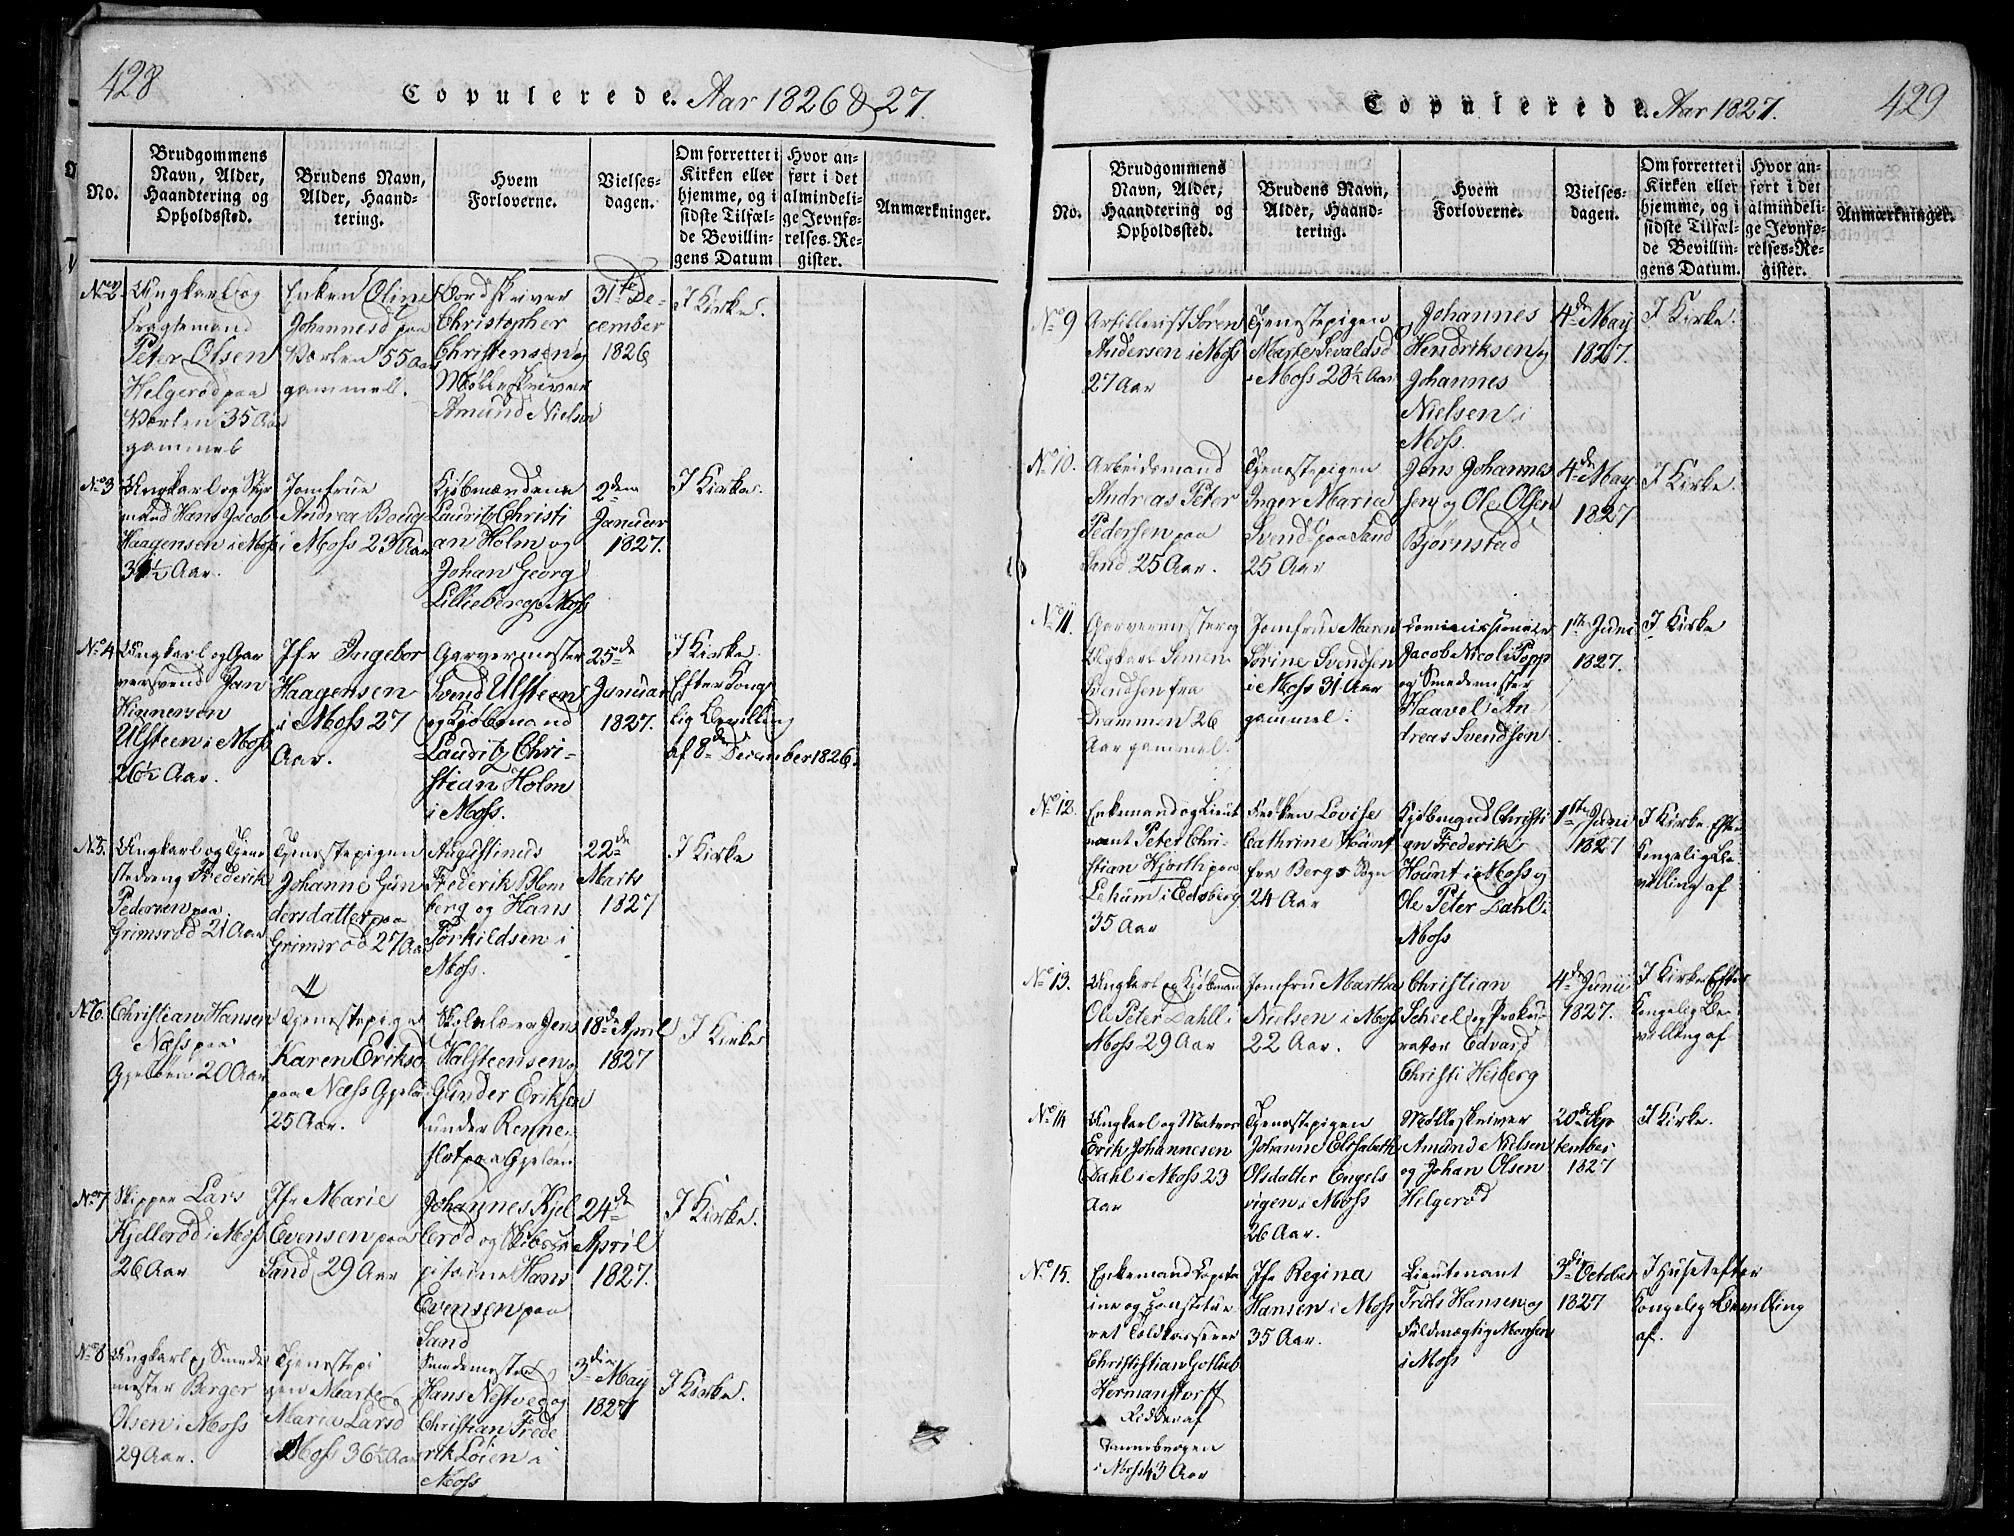 428
Copulerede. Aar 1826 & 27.
No.
Brudgommens
Navn, Alder,
Haandtering og
Opholdssted.
Brudens Navn,
Alder, Haand-
tering.
Hvem
Forloverne.
Vielses-
dagen.
Om forrettet i
Kirken eller
hjemme, og i
sidste Tilfæl-
de Bevillin-
gens Datum
Hvor an-
ført i det
almindeli-
ge Jevnfø-
relses-Re-
gister.
Anmærkninger.
No 2
Ungkarl og
Fragtemand
Peter Olsen
Helgerød paa
Værlen 35 Aar
gammel
Enken Oline
Johannesd paa
Værlen 55 Aar
gammel.
Christopher
Christensen og
Mølleskriver
Amund Nielsen
31te De-
cember
1826
I Kirke.
No 3
Ungkarl og Styr
mand Hans Jacob
Haagensen i Moss
Aar.
Jomfrue
Andrea Boug
i Moss 23 Aar
Kjøbmændene
Lauritz Christi
an Holm og
Johan Georg
Lillieberg i Moss
2den
Januar
1827.
I Kirke.
No 4
Ungkarl og Gar
versvend Jan
Hinnersen
Ulsteen i Moss
26½ Aar.
Jfr Ingebor
Haagensen
i Moss 27
Aar.
Garvermester
Svend Ulsteen
og Kjøbmand
Lauritz Chri-
stian Holm
i Moss.
25de
Januar
1827.
I Kirke
Efter Konge
lig Bevilling
af 8de December 1826.
No 5.
Ungkarl og Tjene
stedreng Frederik
Pedersen paa
Grimsrød 21 Aar
Tjenestepigen
Johanne Gun
dersdatter paa
Grimsrød 27 Aar
Augustinus
Frederik Blom
berg og Hans
Torkildsen i
Moss.
22de
Marts
1827
I Kirke
No 6.
Christian Hansen
Næss paa
Gjeløen 20 Aar
Tjenestepigen
Karen Eriksd
paa Næss Gjelø
25 Aar.
Skolelærer Jens
Halsteensen og
Gunder Eriksen
under Renne-
flot paa Gjeløen
18de April
1827
I Kirke
No 7
Skipper Lars
Kjellerød i Moss
26 Aar
Jfr Marie
Evensen paa
Sand 29 Aar
Johannes Kjel
lerød og Skibsca
pitaine Hans
Evensen paa
Sand
24de
April
1827.
I Kirke.
No 8
Ungkarl og Smede
mester Berger
Olsen i Moss
29 Aar.
Tjenestepi
gen Marte
Marie Larsd
Moss 36½ Aar
Smedemester
Hans Nestveg og
Christian Frede
rik Løien i
Moss
3die May
1827
I Kirke.
Copulerede. Aar 1827.
429
No.
Brudgommens
Navn, Alder,
Haandtering og
Opholdssted.
Brudens Navn,
Alder, Haand-
tering.
Hvem
Forloverne.
Vielses-
dagen.
Om forrettet i
Kirken eller
hjemme, og i
sidste Tilfæl-
de Bevillin-
gens Datum.
Hvor an-
ført i det
almindeli-
ge Jevnfø-
relses-Re-
gister.
Anmærkninger.
No 9
Artillerist Søren
Andersen i Moss
27 Aar
Tjenestepigen
Marte Sevaldsd
i Moss 28½ Aar
Johannes
Hendriksen og
Johannes
Nielsen i
Moss.
4de May
1827.
I Kirke.
No 10.
Arbeidsmand
Andreas Peter
Pedersen paa
Sand 25 Aar.
Tjenestepigen
Inger Maria
Svendsd paa Sand
25 Aar
Jens Johannes
sen og Ole Olsen
Bjørnstad
4de May
1827
I Kirke.
No 11.
Garvermester og
Ungkarl Simen
Svendsen fra
Drammen 26
Aar gammel.
Jomfrue Maren
Sørine Svendsen
i Moss 31 Aar
gammel.
Jacob Nicoli Popp
og Smedemester
Haavel An
dreas Svendsen
1ste Juni
1827.
I Kirke
No 12.
Enkemand og Lieut
nant Peter Chri-
stian Hjorth paa
Lekum i Edsberg
35 Aar
Frøken Lovise
Cathrine Høunt
fra Bergs Sogn
24 Aar
Kjøbmand Christi
an Frederik
Høunt i Moss og
Ole Peter Dahl i
Moss
1ste Juni
1827
I Kirke Efter
Kongelig Be-
villing af
No 13.
Ungkarl og Kjøbmand
Ole Peter Dahll i
Moss 29 Aar
Jomfru Marthe
Nielsen i Moss
22 Aar.
Christian
Scheel og Proku-
rator Edvard
Christi Heiberg
4de Junii
1827.
I Kirke Efter
Kongelig Be-
villing af
No 14
Ungkarl og Matros
Erik Johannesen
Dahl i Moss 23
Aar
Tjenestepigen
Johanne Elisabeth
Olsdatter Engels
vigen i Moss
26 Aar.
Mølleskriver
Amund Nielsen
og Johan Olsen
Helgerød
20de Sep
tember
1827
I Kirke.
No 15.
Enkemand Capita
ine og Constitue-
ret Toldkasserer
Christistian Gotlieb
Hermanstorff
Ridder af
Dannebrogen
i Moss 43 Aar
Jfr Regina
Hansen i Moss
35 Aar.
Lieutenant
Friis Hansen og
Fuldmægtig Monsen
i Moss
3die October
1827
I Huset efter
Kongelig Bevilling
af.